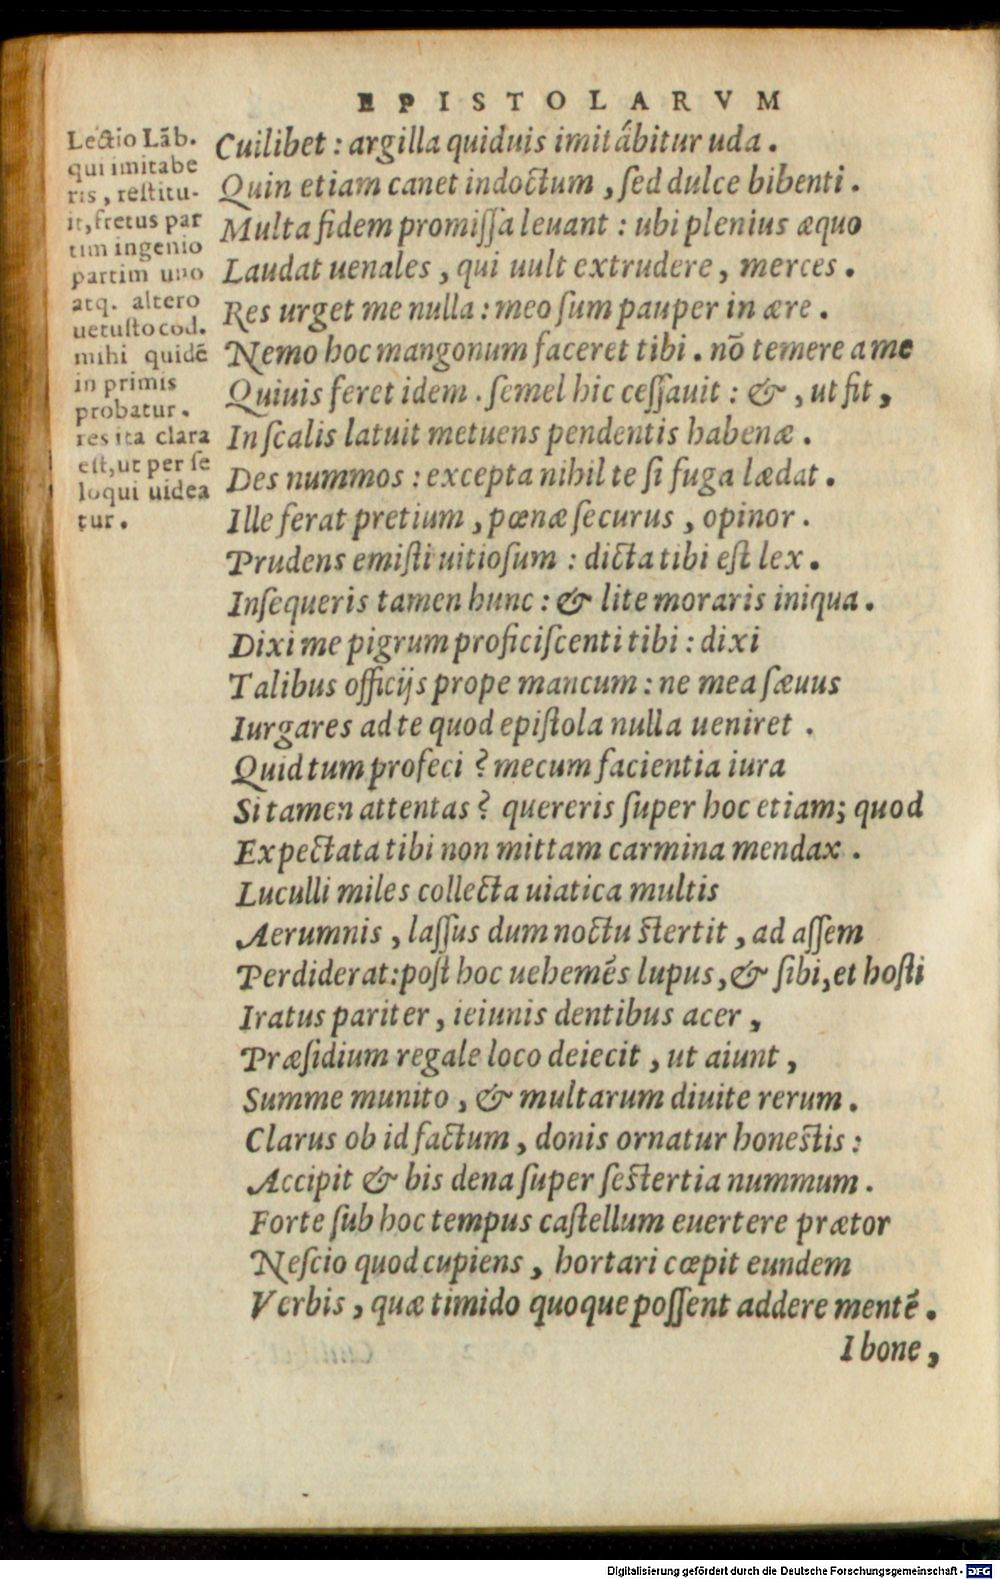 EPISTOLARVM
Lectio Lãb.
qui imitabe
ris, restitu-
it, fretus par
tim ingenio
partim uno
atq. altero
uetusto cod.
mihi quidẽ
in primis
probatur.
res ita clara
est, ut per se
loqui uidea
tur.
Cuilibet : argilla quiduis imitábitur uda.
Quin etiam canet indoctum, sed dulce bibenti.
Multa fidem promissa leuant : ubi plenius æquo
Laudat uenales, qui uult extrudere, merces.
Res urget me nulla : meo sum pauper in ære.
Nemo hoc mangonum faceret tibi. nõ temere a me
Quiuis feret idem. semel hic cessauit : &, ut fit,
In scalis latuit metuens pendentis habenæ.
Des nummos : excepta nihil te si fuga lædat.
Ille ferat pretium, pœnæ securus, opinor.
Prudens emisti uitiosum : dicta tibi est lex.
Insequeris tamen hunc : & lite moraris iniqua.
Dixi me pigrum proficiscenti tibi : dixi
Talibus officijs prope mancum : ne mea sæuus
Iurgares ad te quod epistola nulla ueniret.
Quid tum profeci? mecum facientia iura
Si tamen attentas? quereris super hoc etiam; quod
Expectata tibi non mittam carmina mendax.
Luculli miles collecta uiatica multis
Aerumnis, lassus dum noctu stertit, ad assem
Perdiderat: post hoc uehemẽs lupus, & sibi, et hosti
Iratus pariter, ieiunis dentibus acer,
Præsidium regale loco deiecit, ut aiunt,
Summe munito, & multarum diuite rerum.
Clarus ob id factum, donis ornatur honestis :
Accipit & bis dena super sestertia nummum.
Forte sub hoc tempus castellum euertere prætor
Nescio quod cupiens, hortari cœpit eundem
Verbis, quæ timido quoque possent addere mentẽ.
I bone,
Digitalisierung gefördert durch die Deutsche Forschungsgemeinschaft - DFG